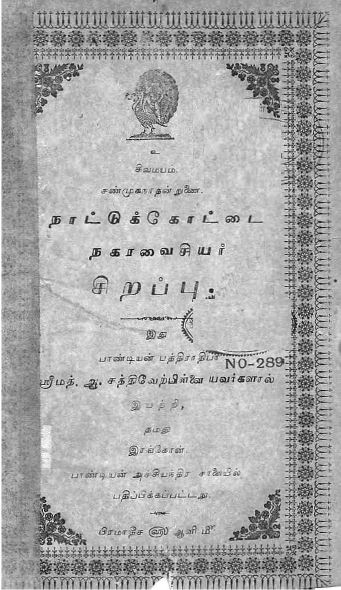 உ
சிவமயம்.
சண்முகநாதன்றுணை.
நாட்டுக்கோட்டை
நகரவைசியர்
சிறப்பு.
இது
பாண்டியன் பத்திராதிபர்
NO-289
ஸ்ரீமத். ஆ. சத்திவேற்பிள்ளை யவர்களால்
இயற்றி,
தமது
இரங்கோன்.
பாண்டியன் அச்சியந்திர சாலையில்
பதிப்பிக்கப்பட்டது.
பிரமாதீச ௵ ஆனி ௴